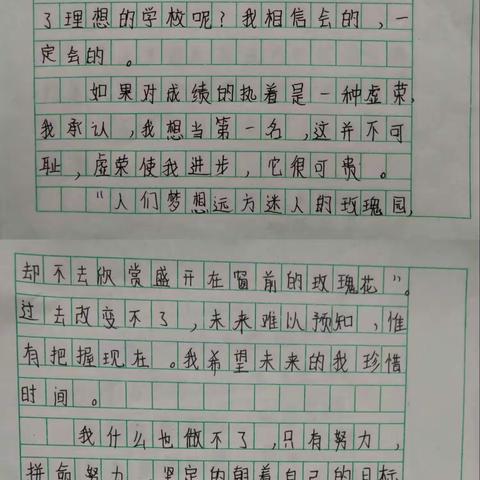 了理想的学校呢？我相信会的，一
定会的。
如果对成绩的执着是一种虚荣，
我承认，我想当第一名，这并不可
耻，虚荣使我进步，它很可贵。
“人们梦想远方迷人的玫瑰园，
却不去欣赏盛开在窗前的玫瑰花”。
过去改变不了，未来难以预知，惟
有把握现在。我希望未来的我珍惜
时间。
我什么也做不了，只有努力，
拼命努力，坚定的朝着自己的目标